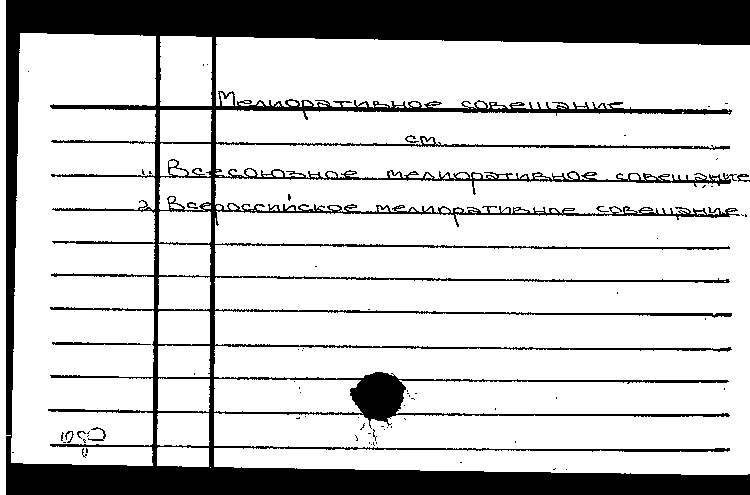 Мелиоративное совещание
см.
1. Всесоюзное мелиоративное совещание
2. Всероссийское мелиоративное совещание.